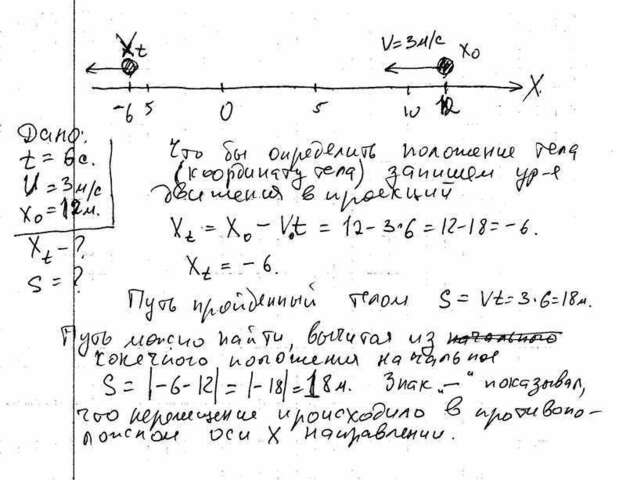 Xt
V=3м/с
X₀
-6 5 0 5 10 12 X
Дано:
t = 6с.
V = 3м/с
X₀ = 12м.
Xt - ?
S = ?
Что бы определить положение тела
(координату тела) запишем ур-е
движения в проекций
Xt = X₀ - V₀t = 12 - 3·6 = 12-18 = -6.
Xt = -6.
Путь пройденный телом S = Vt = 3·6 = 18м.
Путь можно найти, вычитая из начального
конечного положения начальное
S = |-6-12| = |-18| = 18м. Знак „-“ показывал,
что перемещение происходило в противопо-
ложном оси X направлении.